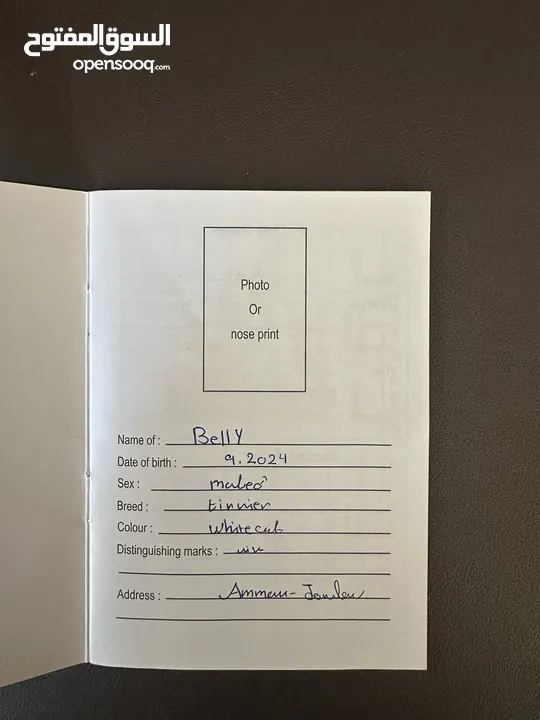 السوق المفتوح
opensooq.com
Photo
Or
nose print
Name of : Belly
Date of birth : 9.2024
Sex : male
Breed :
Colour : white
Distinguishing marks :
Address : Amman - Jordan